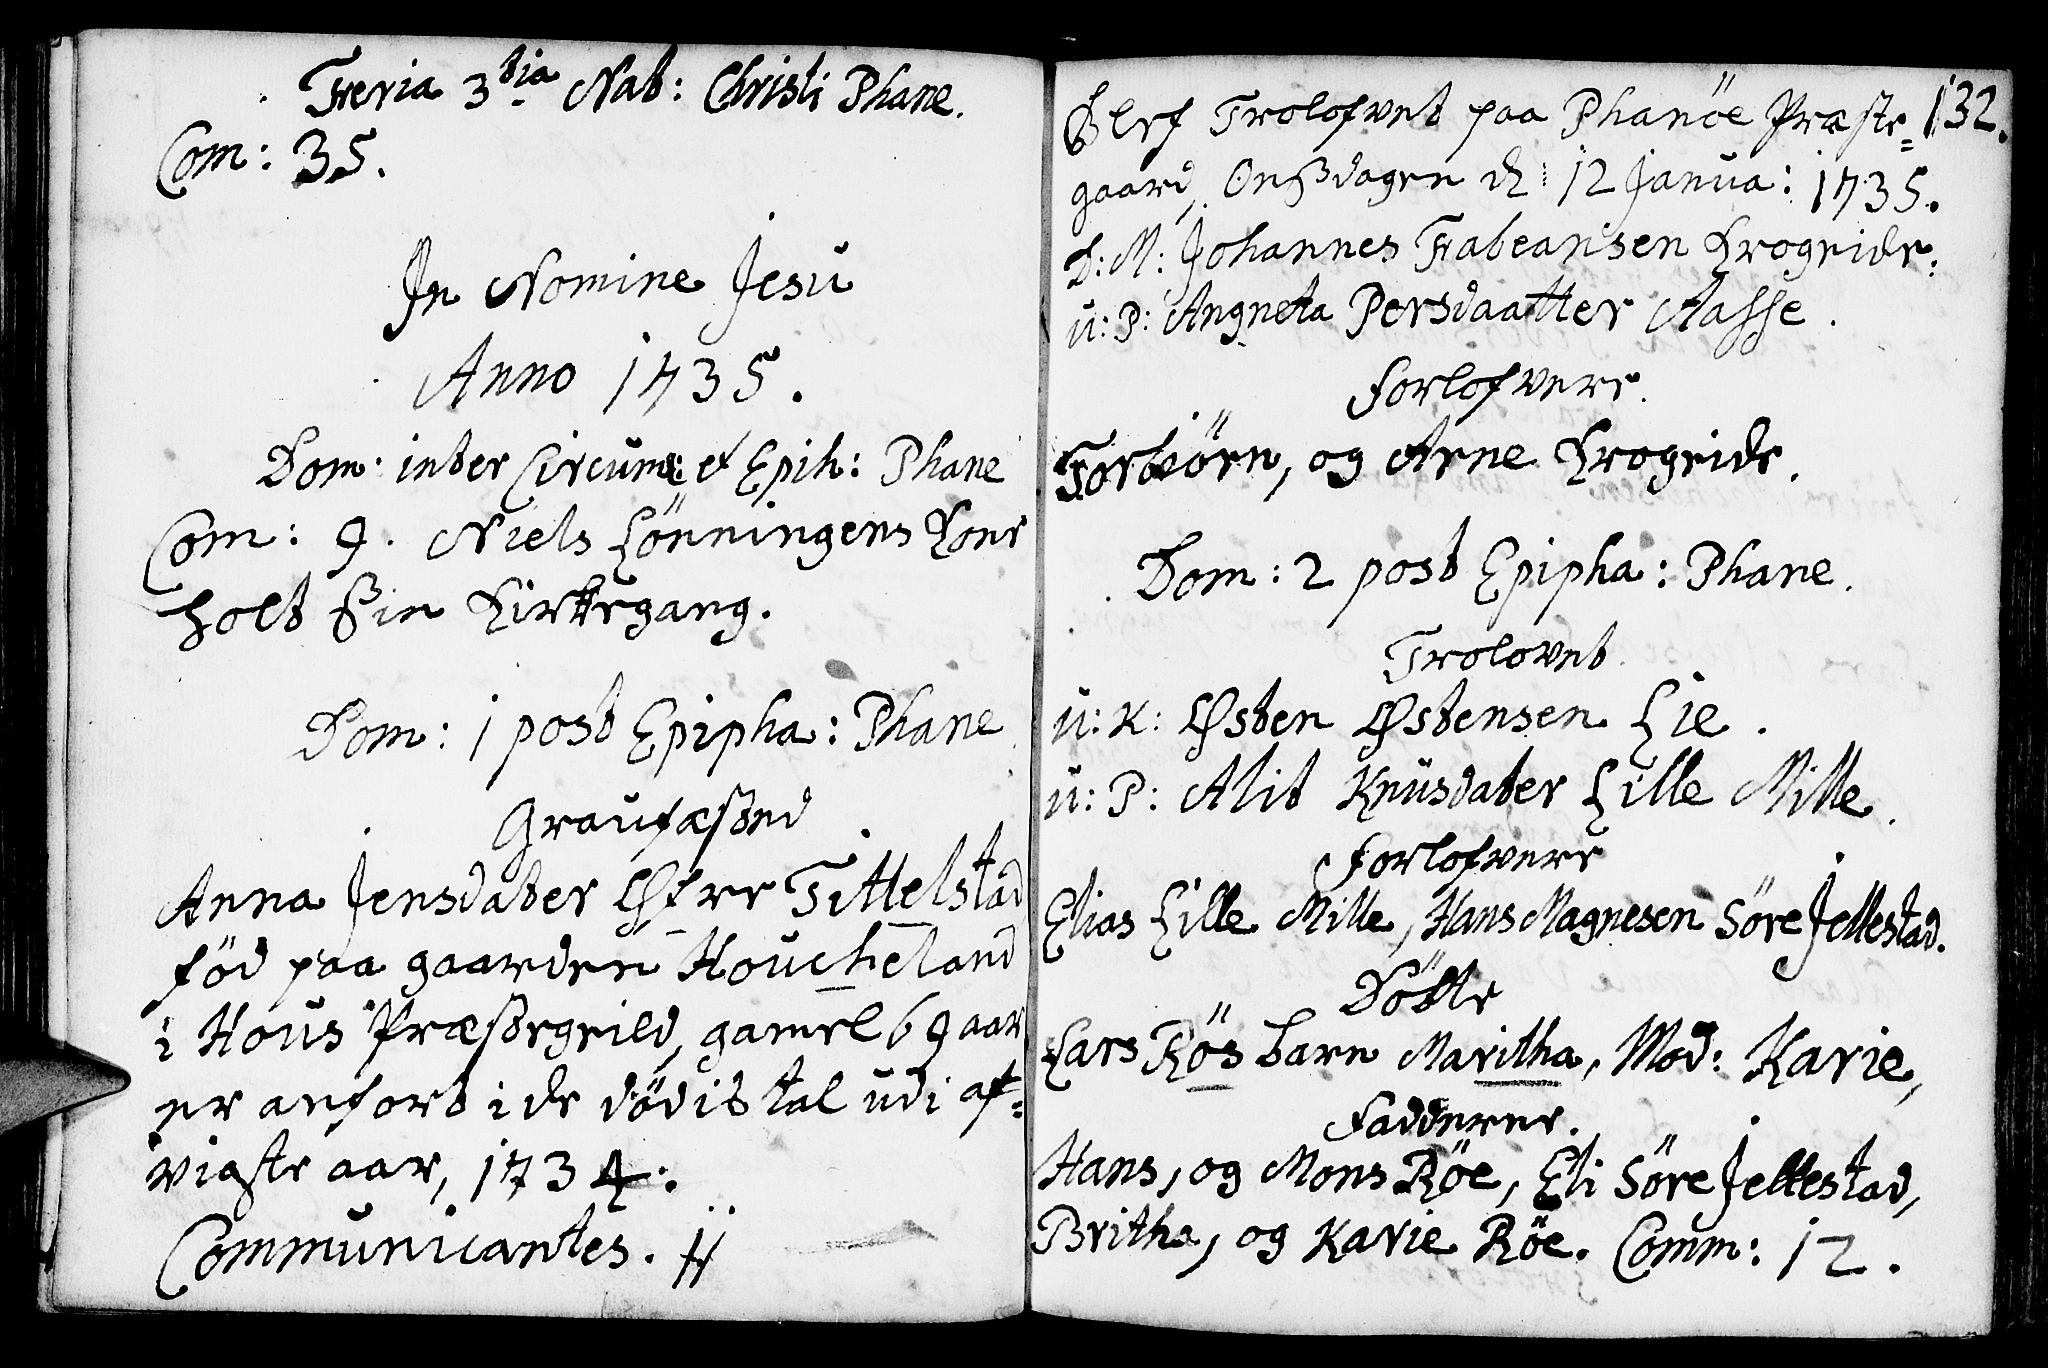 Feria 3tia Nat: Christi Phane.
Com: 35.
In Nomine Jesu
Anno 1735.
Dom: inter Circums: et Epih: Phane
Com: 9. Niels Lönningens Kone
holt sin Kirkegang.
Dom: 1 post Epipha: Phane
Graufæsted
Anna Jensdater Øfre Tittelstad
föd paa gaarden Houcheland
i Hous Præstegield, gamel 69 aar
er anfort i de dödis tal udi af=
vigste aar, 1734.
Communicantes. 11
132.
Blef Trolofvet paa Phanöe Præste=
gaard, Onsdagen d. 12 Janua: 1735.
D: M: Johannes Fabeansen Krogeide.
u: P: Angneta Persdaatter Aasse.
Forlofvere.
Torbiörn, og Arne Krogeide.
Dom: 2 post Epipha: Phane.
Trolovet
u: K: Østen Østensen Lie.
u: P: Alit Knusdater Lille Mille.
Forlofvere
Elias Lille Mille, Hans Magnesen Söre Jellestad.
Döbte
Lars Rös barn Maritha, Mod: Karie,
Faddere.
Hans, og Mons Röe, Eli Söre Jellestad,
Britha, og Karie Röe. Comm: 12.